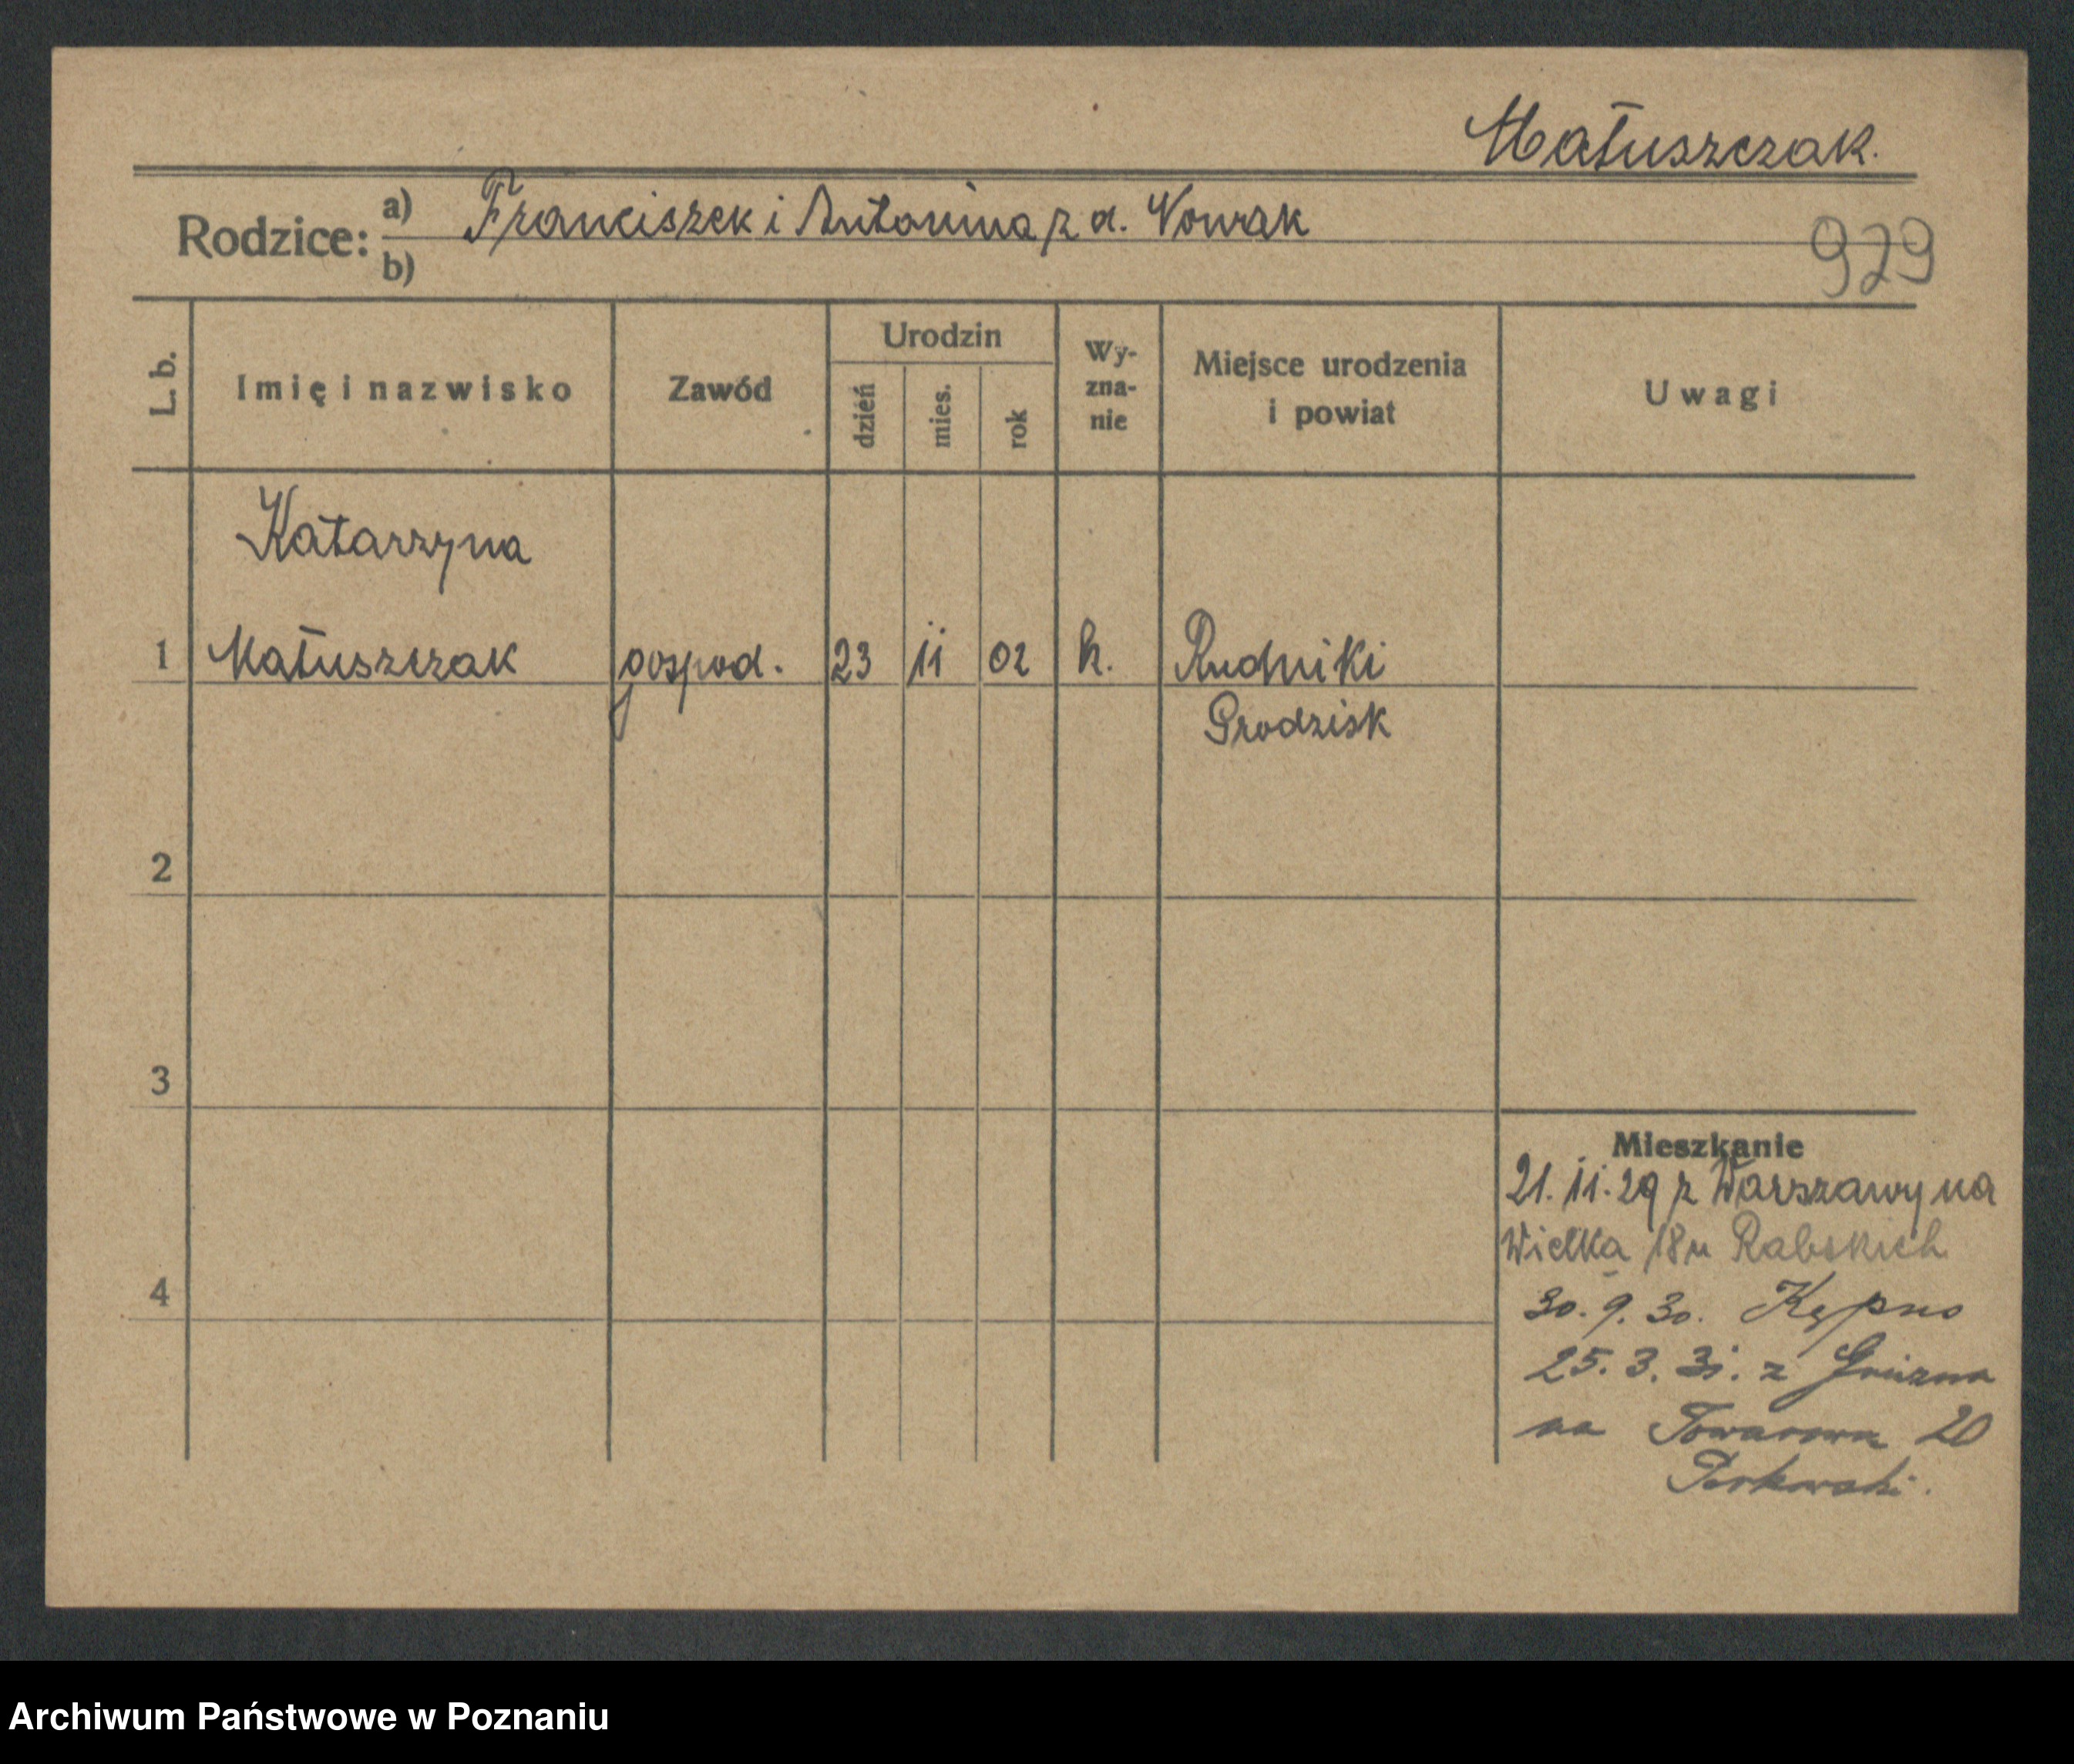 Matuszczak.
Rodzice: a) Franciszek i Antonina z d. Nowak
b)
979
L. b. Imię i nazwisko Zawód Urodzin dzień mies. rok Wy-zna-nie Miejsce urodzenia i powiat Uwagi
Katarzyna
1 Matuszczak gospod. 23 11 02 k. Rudniki
Grodzisk
2
3
4
Mieszkanie
21.11.29 z Warszawy na
Wielka 18 u Rabskich
30.9.30. Kępno
25.3.31. z Gniezna
na Towarowa 20
Archiwum Państwowe w Poznaniu